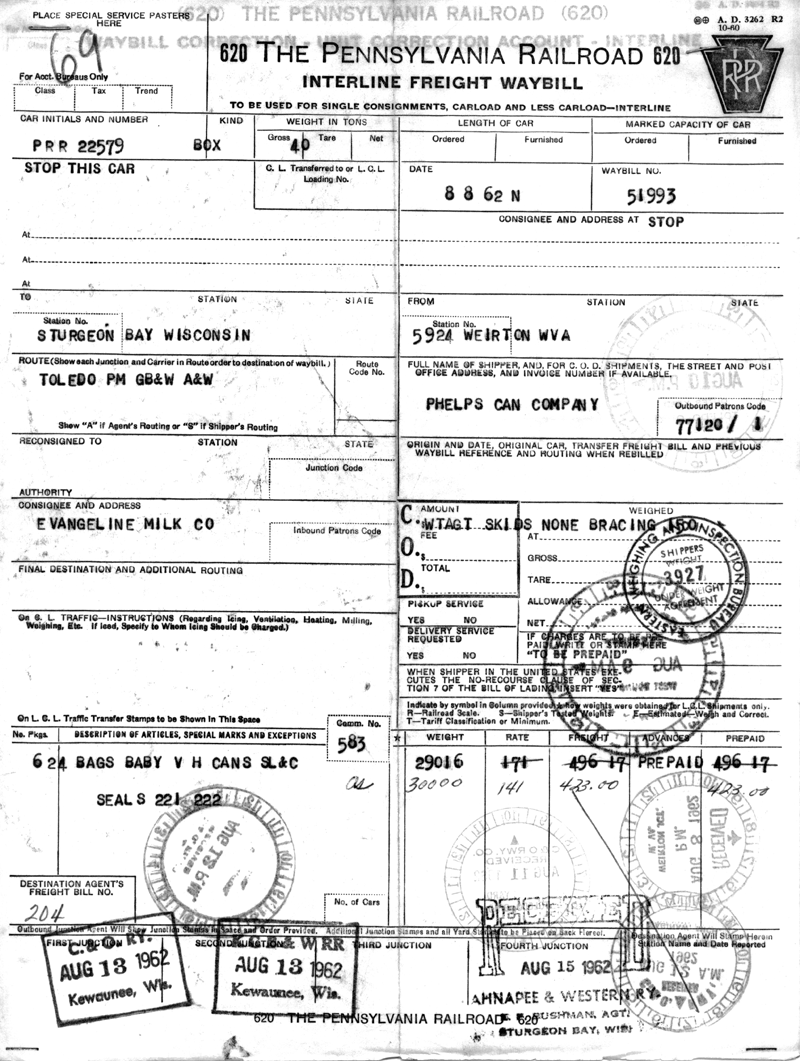 PLACE SPECIAL SERVICE PASTERS HERE
(620) THE PENNSYLVANIA RAILROAD (620)
WAYBILL CORRECTION - UNIT CORRECTION ACCOUNT - INTERLINE
A. D. 3262 R2
10-60
T69
620 THE PENNSYLVANIA RAILROAD 620
PRR
INTERLINE FREIGHT WAYBILL
For Acct. Bureaus Only
Class Tax Trend
TO BE USED FOR SINGLE CONSIGNMENTS, CARLOAD AND LESS CARLOAD—INTERLINE
CAR INITIALS AND NUMBER KIND WEIGHT IN TONS LENGTH OF CAR MARKED CAPACITY OF CAR
Gross Tare Net Ordered Furnished Ordered Furnished
PRR 22579 BOX 40
STOP THIS CAR
C. L. Transferred to or L.C.L. Loading No.
DATE WAYBILL NO.
8 8 62 N 51993
CONSIGNEE AND ADDRESS AT STOP
At
At
At
TO STATION STATE FROM STATION STATE
Station No. Station No.
STURGEON BAY WISCONSIN 5924 WEIRTON WVA
ROUTE (Show each Junction and Carrier in Route order to destination of waybill.) Route Code No.
TOLEDO PM GB&W A&W
Show "A" if Agent's Routing or "S" if Shipper's Routing
FULL NAME OF SHIPPER, AND, FOR C. O. D. SHIPMENTS, THE STREET AND POST
OFFICE ADDRESS, AND INVOICE NUMBER IF AVAILABLE.
PHELPS CAN COMPANY
Outbound Patrons Code
77120/ 1
RECONSIGNED TO STATION STATE
Junction Code
AUTHORITY
ORIGIN AND DATE, ORIGINAL CAR, TRANSFER FREIGHT BILL AND PREVIOUS
WAYBILL REFERENCE AND ROUTING WHEN REBILLED
CONSIGNEE AND ADDRESS
EVANGELINE MILK CO
Inbound Patrons Code
FINAL DESTINATION AND ADDITIONAL ROUTING
C. O. D.
AMOUNT WEIGHED
WTAGT SKIDS NONE BRACING 150
FEE AT
GROSS
TOTAL TARE
ALLOWANCE
NET
EASTERN WEIGHING AND INSPECTION BUREAU
SHIPPERS WEIGHT
3927
UNDER WEIGHT AGREEMENT
PICKUP SERVICE
YES NO
DELIVERY SERVICE REQUESTED
YES NO
IF CHARGES ARE TO BE PRE-
PAID, WRITE OR STAMP HERE
"TO BE PREPAID"
WHEN SHIPPER IN THE UNITED STATES EXE-
CUTES THE NO-RECOURSE CLAUSE OF SEC-
TION 7 OF THE BILL OF LADING INSERT "YES"
On C. L. TRAFFIC—INSTRUCTIONS (Regarding Icing, Ventilation, Heating, Milling,
Weighing, Etc. If Iced, Specify to Whom Icing Should be Charged.)
Indicate by symbol in Column provided how weights were obtained for L.C.L. Shipments only.
R—Railroad Scale. S—Shipper's Tested Weights. E—Estimated—Weigh and Correct.
T—Tariff Classification or Minimum.
On L. C. L. Traffic Transfer Stamps to be Shown in This Space
Comm. No.
583
No. Pkgs. DESCRIPTION OF ARTICLES, SPECIAL MARKS AND EXCEPTIONS * WEIGHT RATE FREIGHT ADVANCES PREPAID
624 BAGS BABY V H CANS SL&C 29016 171 496 17 PREPAID 496 17
30000 141 423.00 423.00
SEALS 221 222
AUG 12 P.M.
C & O RWY. CO.
RECEIVED
AUG 11
RECEIVED
AUG 8 1962
P.M.
WEIRTON JCT. W. VA.
DESTINATION AGENT'S
FREIGHT BILL NO.
204
No. of Cars
Outbound Junction Agent Will Show Junction Stamps in Space and Order Provided. Additional Junction Stamps and all Yard Stamps to be Placed on Back Hereof.
Destination Agent Will Stamp Herein
Station Name and Date Reported
FIRST JUNCTION SECOND JUNCTION THIRD JUNCTION FOURTH JUNCTION
C. & O. RY.
AUG 13 1962
Kewaunee, Wis.
& W RR
AUG 13 1962
Kewaunee, Wis.
AUG 15 1962
AHNAPEE & WESTERN RY.
BUSHMAN, AGT.
STURGEON BAY, WIS.
620 THE PENNSYLVANIA RAILROAD 620